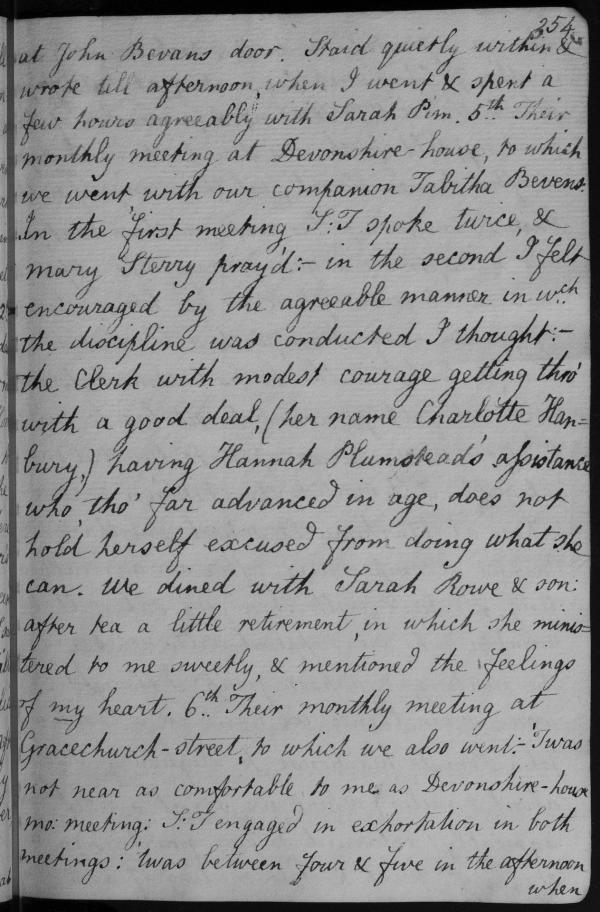 254
at John Bevans door. Staid quietly within &
wrote till afternoon, when I went & spent a
few hours agreeably with Sarah Pim. 5th Their
monthly meeting at Devonshire-house, to which
we went, with our companion Tabitha Bevens.
In the first meeting S:T spoke twice, &
mary Sterry pray'd:- in the second I felt
encouraged by the agreeable manner in wch
the discipline was conducted I thought:-
the Clerk with modest courage getting thro'
with a good deal, (her name Charlotte Han=
bury,) having Hannah Plumstead's assistance
who, tho' far advanced in age, does not
hold herself excused from doing what she
can. We dined with Sarah Rowe & son:
after tea a little retirement, in which she minis=
tered to me sweetly, & mentioned the feelings
of my heart. 6th Their monthly meeting at
Gracechurch-street, to which we also went:- 'Twas
not near as comfortable to me as Devonshire-house
mo: meeting: S:T engaged in exhortation in both
meetings: 'twas between four & five in the afternoon
when